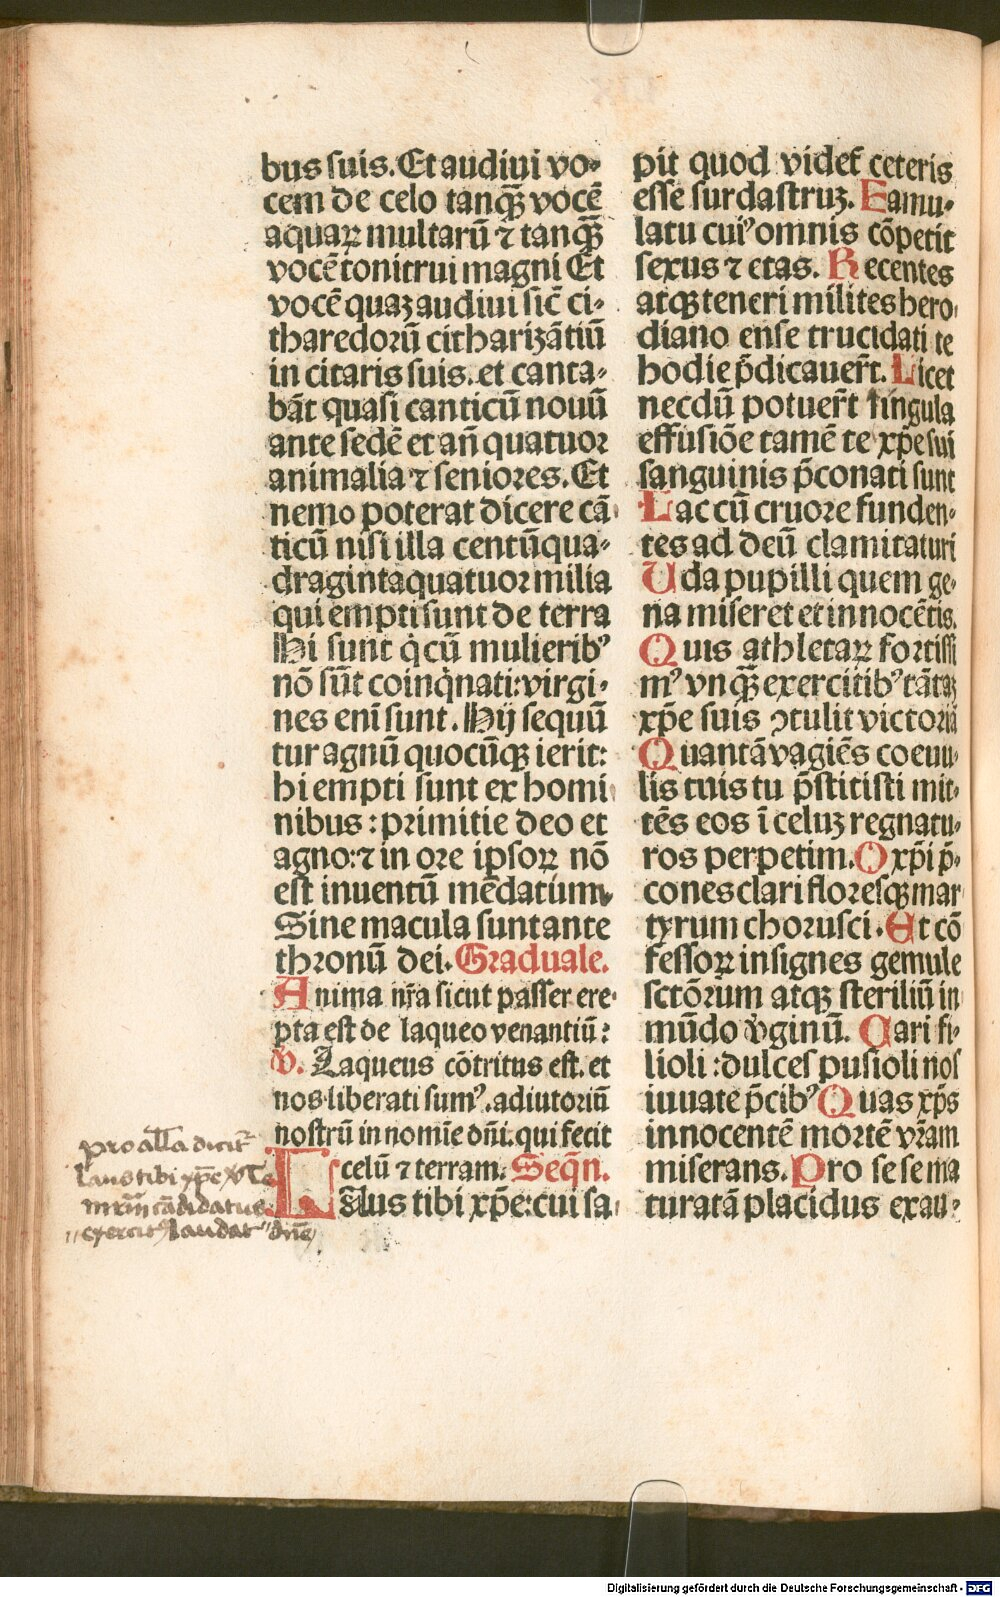 bus suis. Et audiui vo-
cem de celo tanqȝ̄ vocē
aquaꝝ multarū ⁊ tanqȝ̄
vocē tonitrui magni Et
vocē quaȝ audiui sic̄ ci-
tharedorū citharizātiū
in citaris suis. et canta-
bāt quasi canticū nouū
ante sedē et an̄ quatuor
animalia ⁊ seniores. Et
nemo poterat dicere cā
ticū nisi illa centūqua-
dragintaquatuor milia
qui empti sunt de terra
Hi sunt q̇ cū mulieribꝰ
nō sūt coinq̇nati: virgi-
nes eni sunt. Hij sequū
tur agnū quocūqȝ ierit:
hi empti sunt ex homi
nibus: primitie deo et
agno: ⁊ in ore ipsoꝝ nō
est inuentū mēdatium
Sine macula sunt ante
thronū dei. Graduale.
Anima nr̄a sicut passer ere-
pta est de laqueo venantiū:
V̄. Laqueus cōtritus est. et
nos liberati sumꝰ. adiutoriū
nostrū in nomīe dn̄i. qui fecit
celū ⁊ terram. Seqn̄.
Laus tibi xp̄e: cui sa
pit quod videt̄ ceteris
esse surdastruȝ. Famu-
latu cuiꝰ omnis cōpetit
sexus ⁊ etas. Recentes
atqȝ teneri milites hero
diano ense trucidati te
hodie p̄dicauer̄t. Licet
necdū potuer̄t lingula
effusiōe tamē te xp̄e sui
sanguinis p̄conati sunt
Lac cū cruore funden-
tes ad deū clamitaturi
Uda pupilli quem ge-
na miseret et innocētis.
Quis athletaꝝ fortissi
mꝰ vnqȝ̄ exercitibꝰ tātaȝ
xp̄e suis ↄtulit victoriā
Quantā vagiēs coeuu-
lis tuis tu p̄stitisti mit-
tēs eos ī celuȝ regnatu-
ros perpetim. O xp̄i p̄-
cones clari floresqȝ mar
tyrum chorusci. Et cō
fessoꝝ insignes gemule
sctōrum atqȝ steriliū in
mūdo v̄ginū. Cari fi-
lioli: dulces pusioli nos
iuuate p̄cibꝰ Quas xp̄s
innocentē mortē vr̄am
miserans. Pro se se ma
turatā placidus exau-
pro alla dicit̄
Laus tibi xp̄e v̄ Te
mr̄m cādidatus
exercitꝰ laudat dn̄e
Digitalisierung gefördert durch die Deutsche Forschungsgemeinschaft - DFG